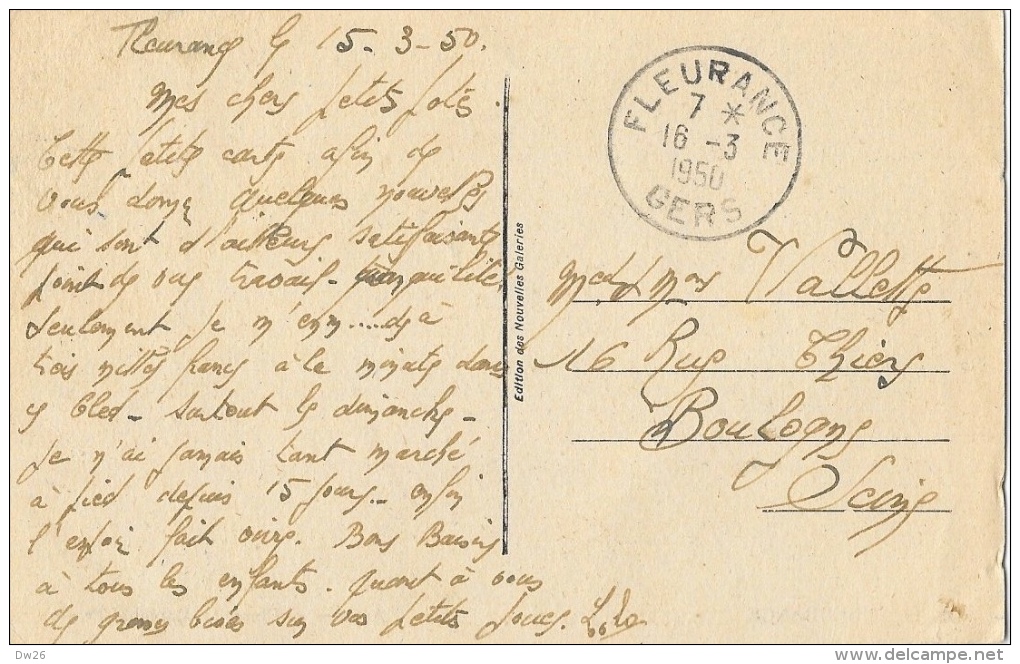 Fleurance le 15-3-50.
Mes chers petits potes.
Cette petite carte afin de
vous donner quelques nouvelles
qui sont d'ailleurs satisfaisantes
point de vue travail - tranquilité.
Seulement je m'emm.....de à
trois milles francs à la minute dans
ce bled - surtout le dimanche -
Je n'ai jamais tant marché
à pied depuis 15 jours - enfin
l'espoir fait vivre. Bons Baisers
à tous les enfants. quant à vous
de grosses bises sur vos petits joues. Lolo
FLEURANCE
7 *
16 -3
1950
GERS
Edition des Nouvelles Galeries
Vallette
16 Rue Thiers
Boulogne
Seine
Dw26
delcampe.net